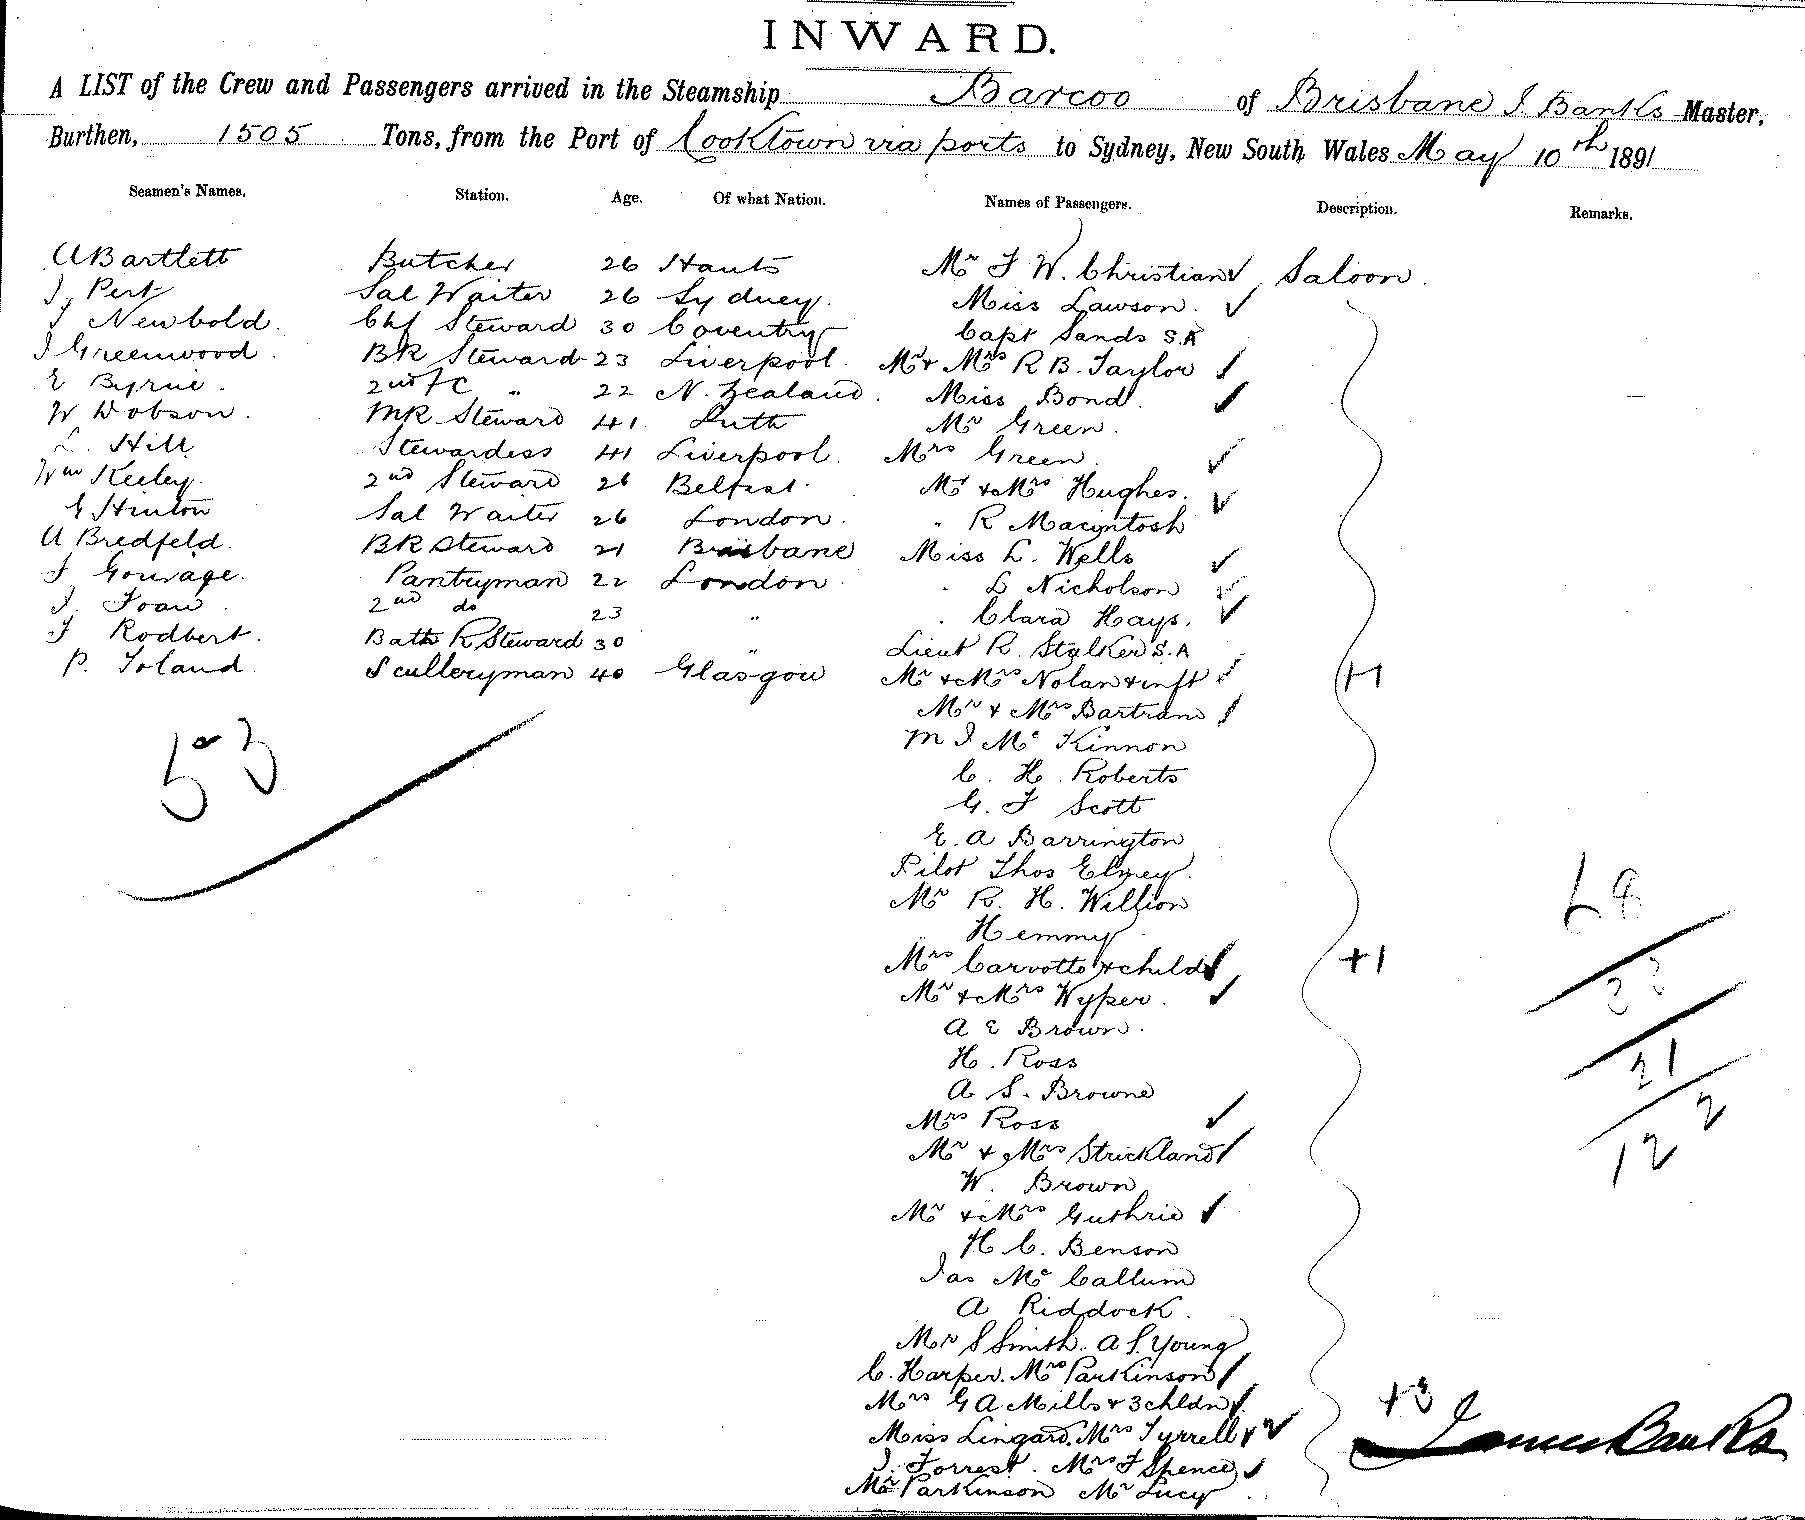 INWARD.
A LIST of the Crew and Passengers arrived in the Steamship Barcoo of Brisbane J. Banks Master,
Burthen, 1505 Tons, from the Port of Cooktown via ports to Sydney, New South Wales May 10th 1891
Seamen's Names. Station. Age. Of what Nation. Names of Passengers. Description. Remarks.
A Bartlett Butcher 26 Hants Mr F W. Christian Saloon
J. Pert Sal Waiter 26 Sydney. Miss Lawson.
J Newbold. Chf Steward 30 Coventry Capt Sands S.A
J Greenwood. BR Steward 23 Liverpool. Mr & Mrs R B. Taylor
E Byrne. 2nd /C " 22 N. Zealand. Miss Bond
W Dobson. MR Steward 41 Luth Mr Green.
L. Hill Stewardess 41 Liverpool. Mrs Green
Wm Keeley. 2nd Steward 26 Belfast. Mr & Mrs Hughes.
G Hinton Sal Waiter 26 London. " R Macintosh
A Bredfeld. BR Steward 21 Brisbane Miss L. Wells
J Gouvage. Pantryman 22 London " L Nicholson
J. Foan 2nd do 23 " " Clara Hays.
J Rodbert. Bath R Steward 30 " Lieut R. Stalker S.A
P. Toland Scullerryman 40 Glasgow Mr & Mrs Nolan & inft +1
Mr & Mrs Bartram
53 M J Mc Kinnon
C. H. Roberts
G. F Scott
E. A Barrington
Pilot Thos Elmey.
Mr R. H. Willion 68
Hemmy
Mrs Carvotto & child +1
Mr & Mrs Wyper. 33
A E Brown.
H. Ross 21
A S. Browne
Mrs Ross 2
Mr & Mrs Strickland 12
W. Brown
Mr & Mrs Guthrie
H C. Benson
Jas Mc Callum
A Riddock.
Mr S Smith. A S. Young
C. Harper. Mrs Parkinson
Mrs G A Mills & 3 chldn +3
Miss Lingard. Mrs Tyrrell James Banks
J. Forrest. Mrs F Spence
Mr Parkinson Mr Lucy